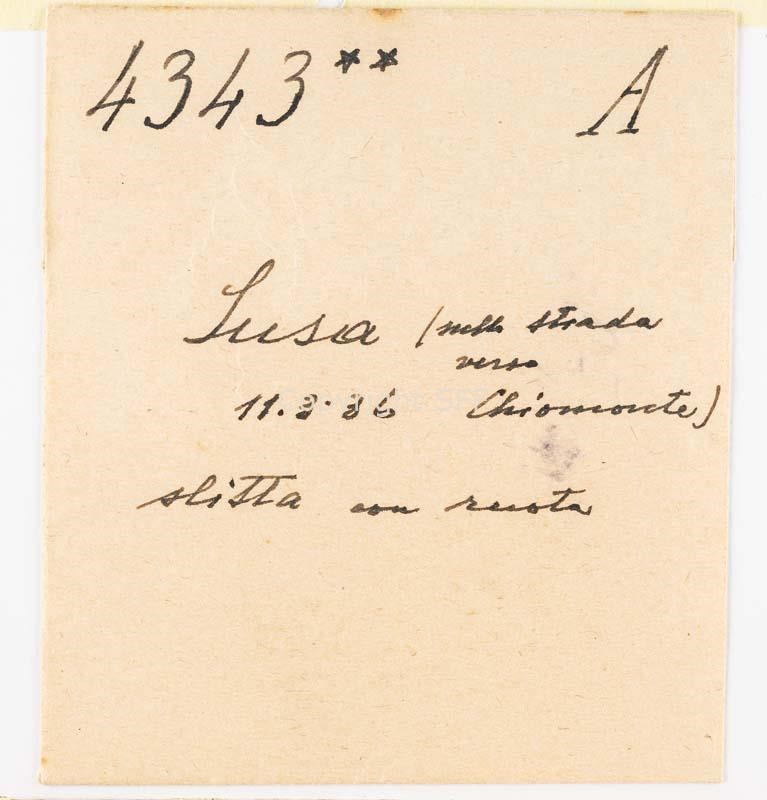 4343** A
Susa (nella strada
verso
11.8.36 Chiomonte)
slitta con ruota